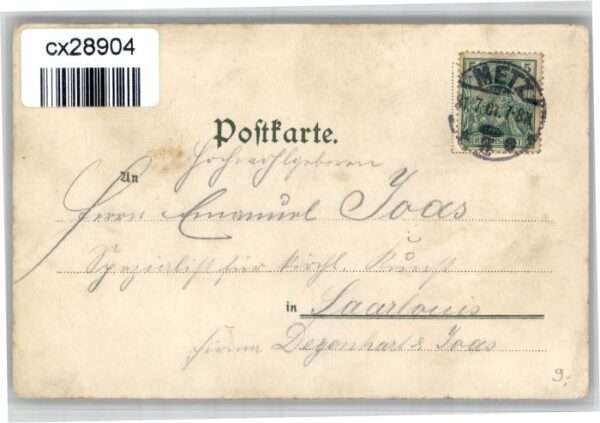 cx28904
5
METZ
31.7.01. 7-8V.
Postkarte.
Hochwohlgeboren
An
Herrn Emanuel Joas
Spezialist für kirchl. Kunst
in Saarlouis
Firma Degenhart & Joas
9,-